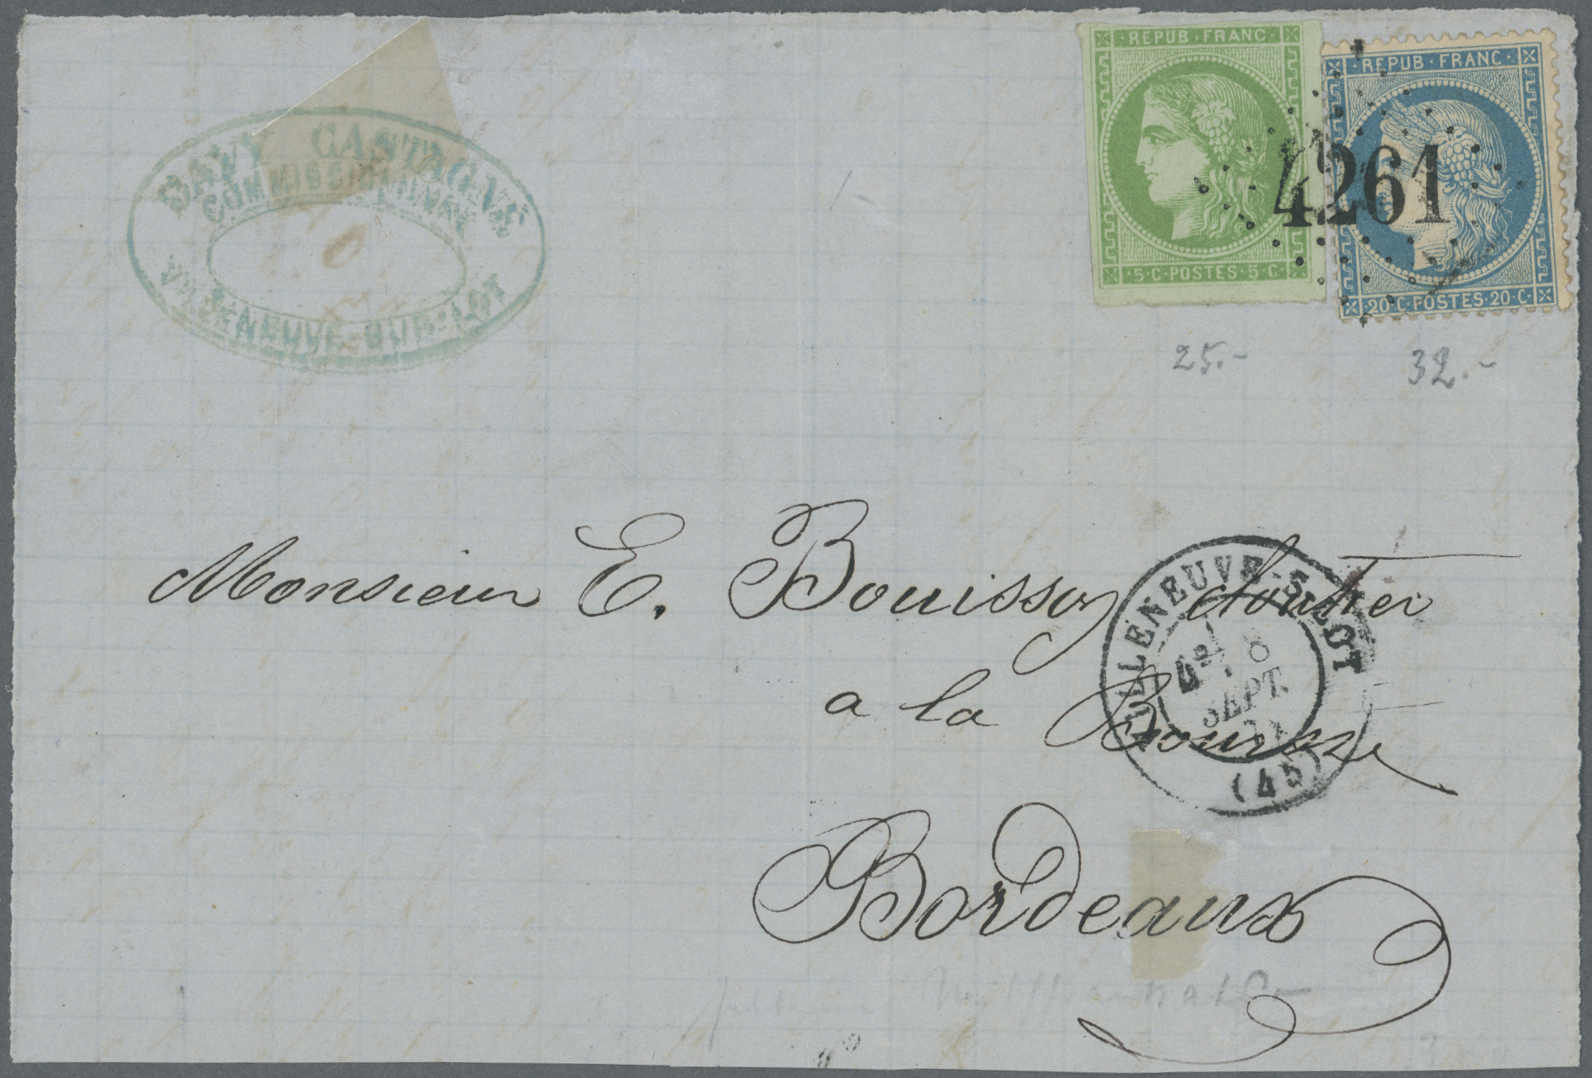 REPUB · FRANC ·
5 · C · POSTES · 5 C ·
· REPUB · FRANC ·
20 · C · POSTES · 20 · C ·
4261
DAVY CASTAGNÉ
VILLENEUVE-SUR-LOT
25.-
32.-
Monsieur E. Bouissoy
a la Bourse
Bordeaux
VILLENEUVE-S-LOT
8
SEPT.
(45)